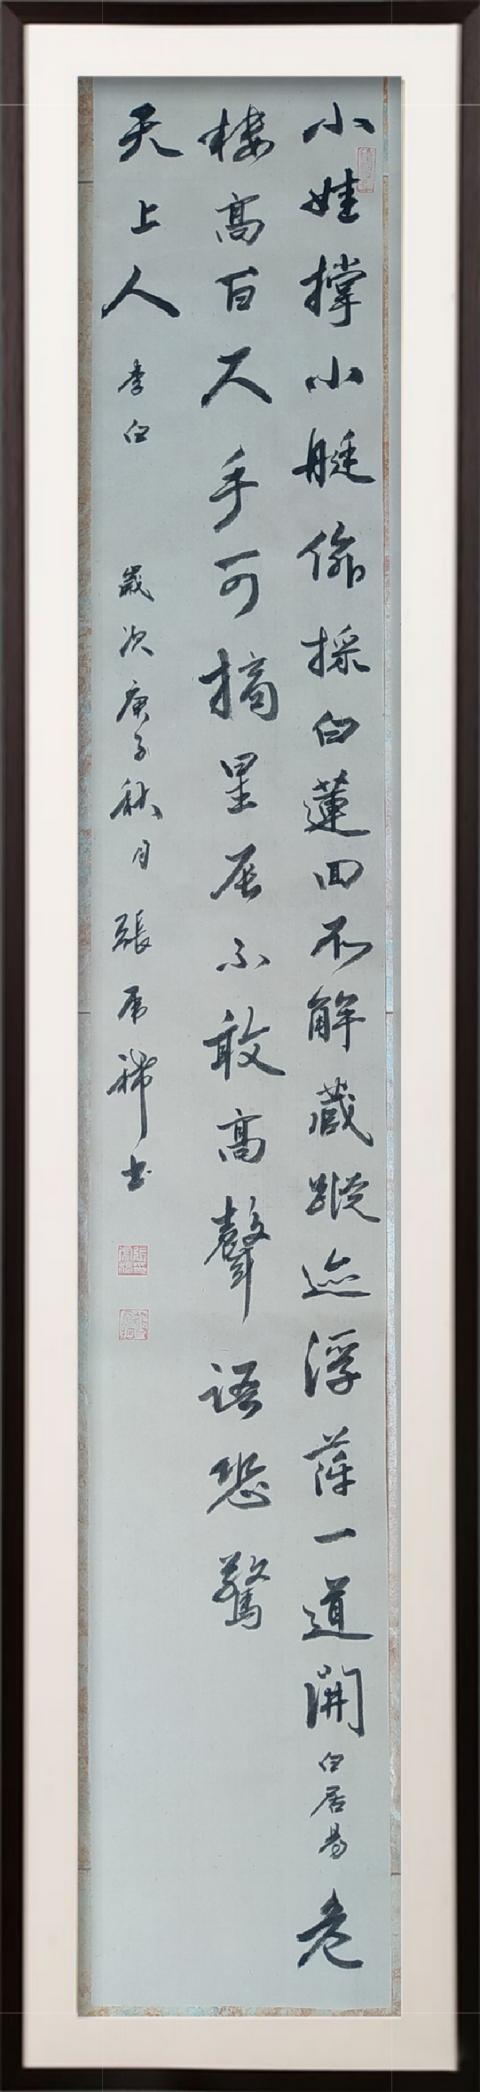 小娃撑小艇偷採白蓮回不解藏蹤迹浮萍一道開白居易危
樓高百尺手可摘星辰不敢高聲語恐驚
天上人李白
歲次庚子秋月張
書